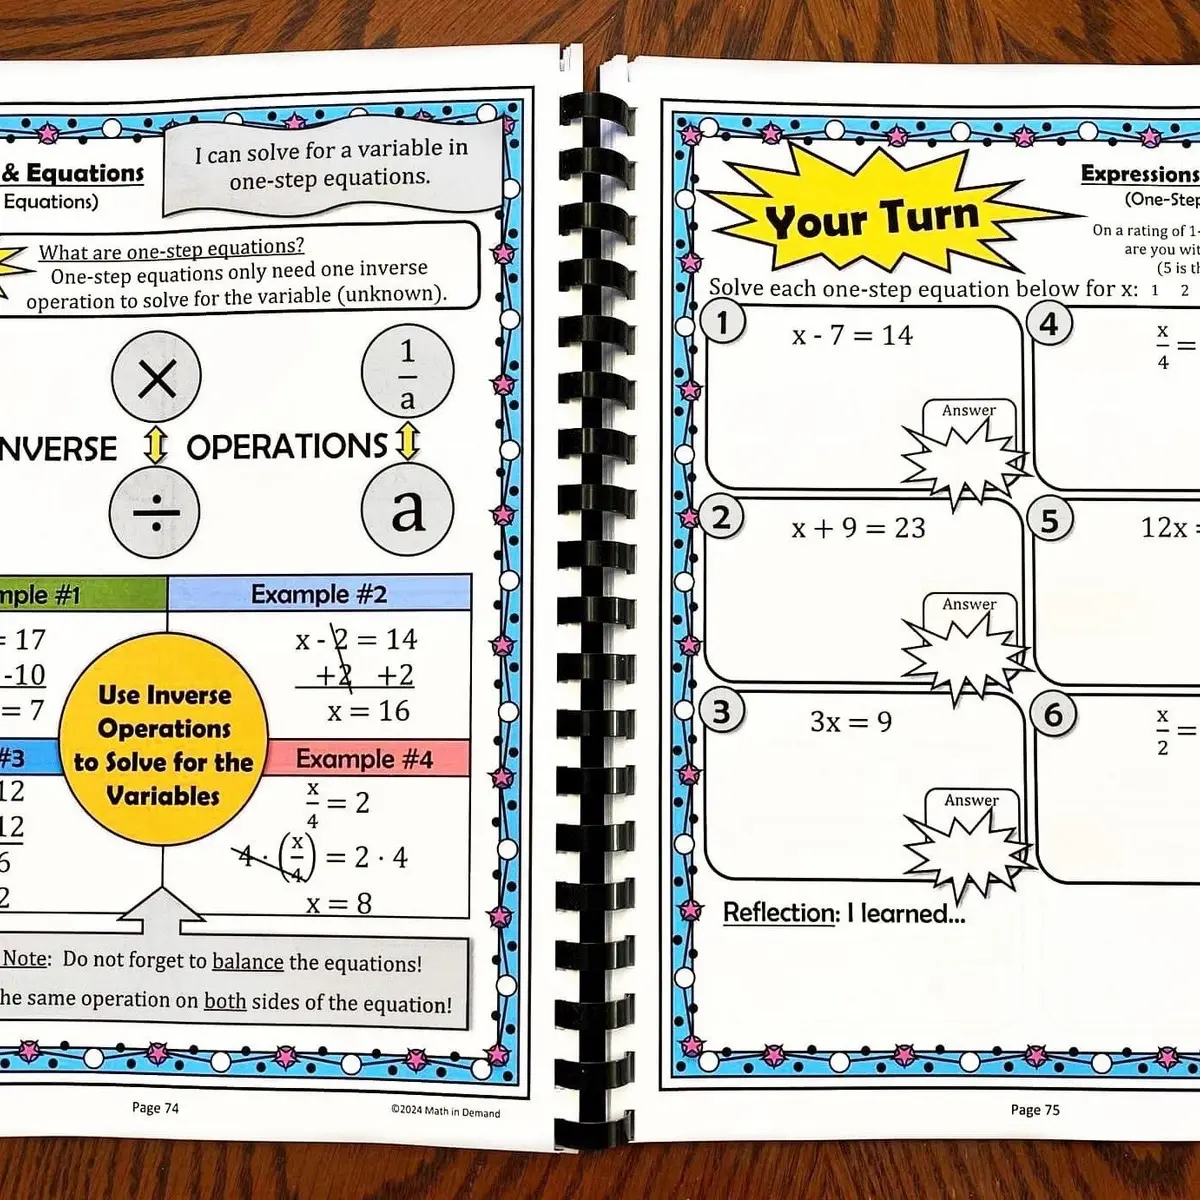 & Equations
Equations)
I can solve for a variable in
one-step equations.
What are one-step equations?
One-step equations only need one inverse
operation to solve for the variable (unknown).
×
÷
1
a
a
NVERSE OPERATIONS
mple #1
= 17
-10
= 7
Example #2
x - 2 = 14
+2 +2
x = 16
Use Inverse
Operations
to Solve for the
Variables
#3
12
12
6
2
Example #4
x/4 = 2
4 · (x/4) = 2 · 4
x = 8
Note: Do not forget to balance the equations!
he same operation on both sides of the equation!
Page 74
©2024 Math in Demand
Your Turn
Expressions
(One-Step
On a rating of 1-
are you wit
(5 is th
Solve each one-step equation below for x: 1 2
1
x - 7 = 14
Answer
2
x + 9 = 23
Answer
3
3x = 9
Answer
4
x/4 =
5
12x =
6
x/2 =
Reflection: I learned...
Page 75